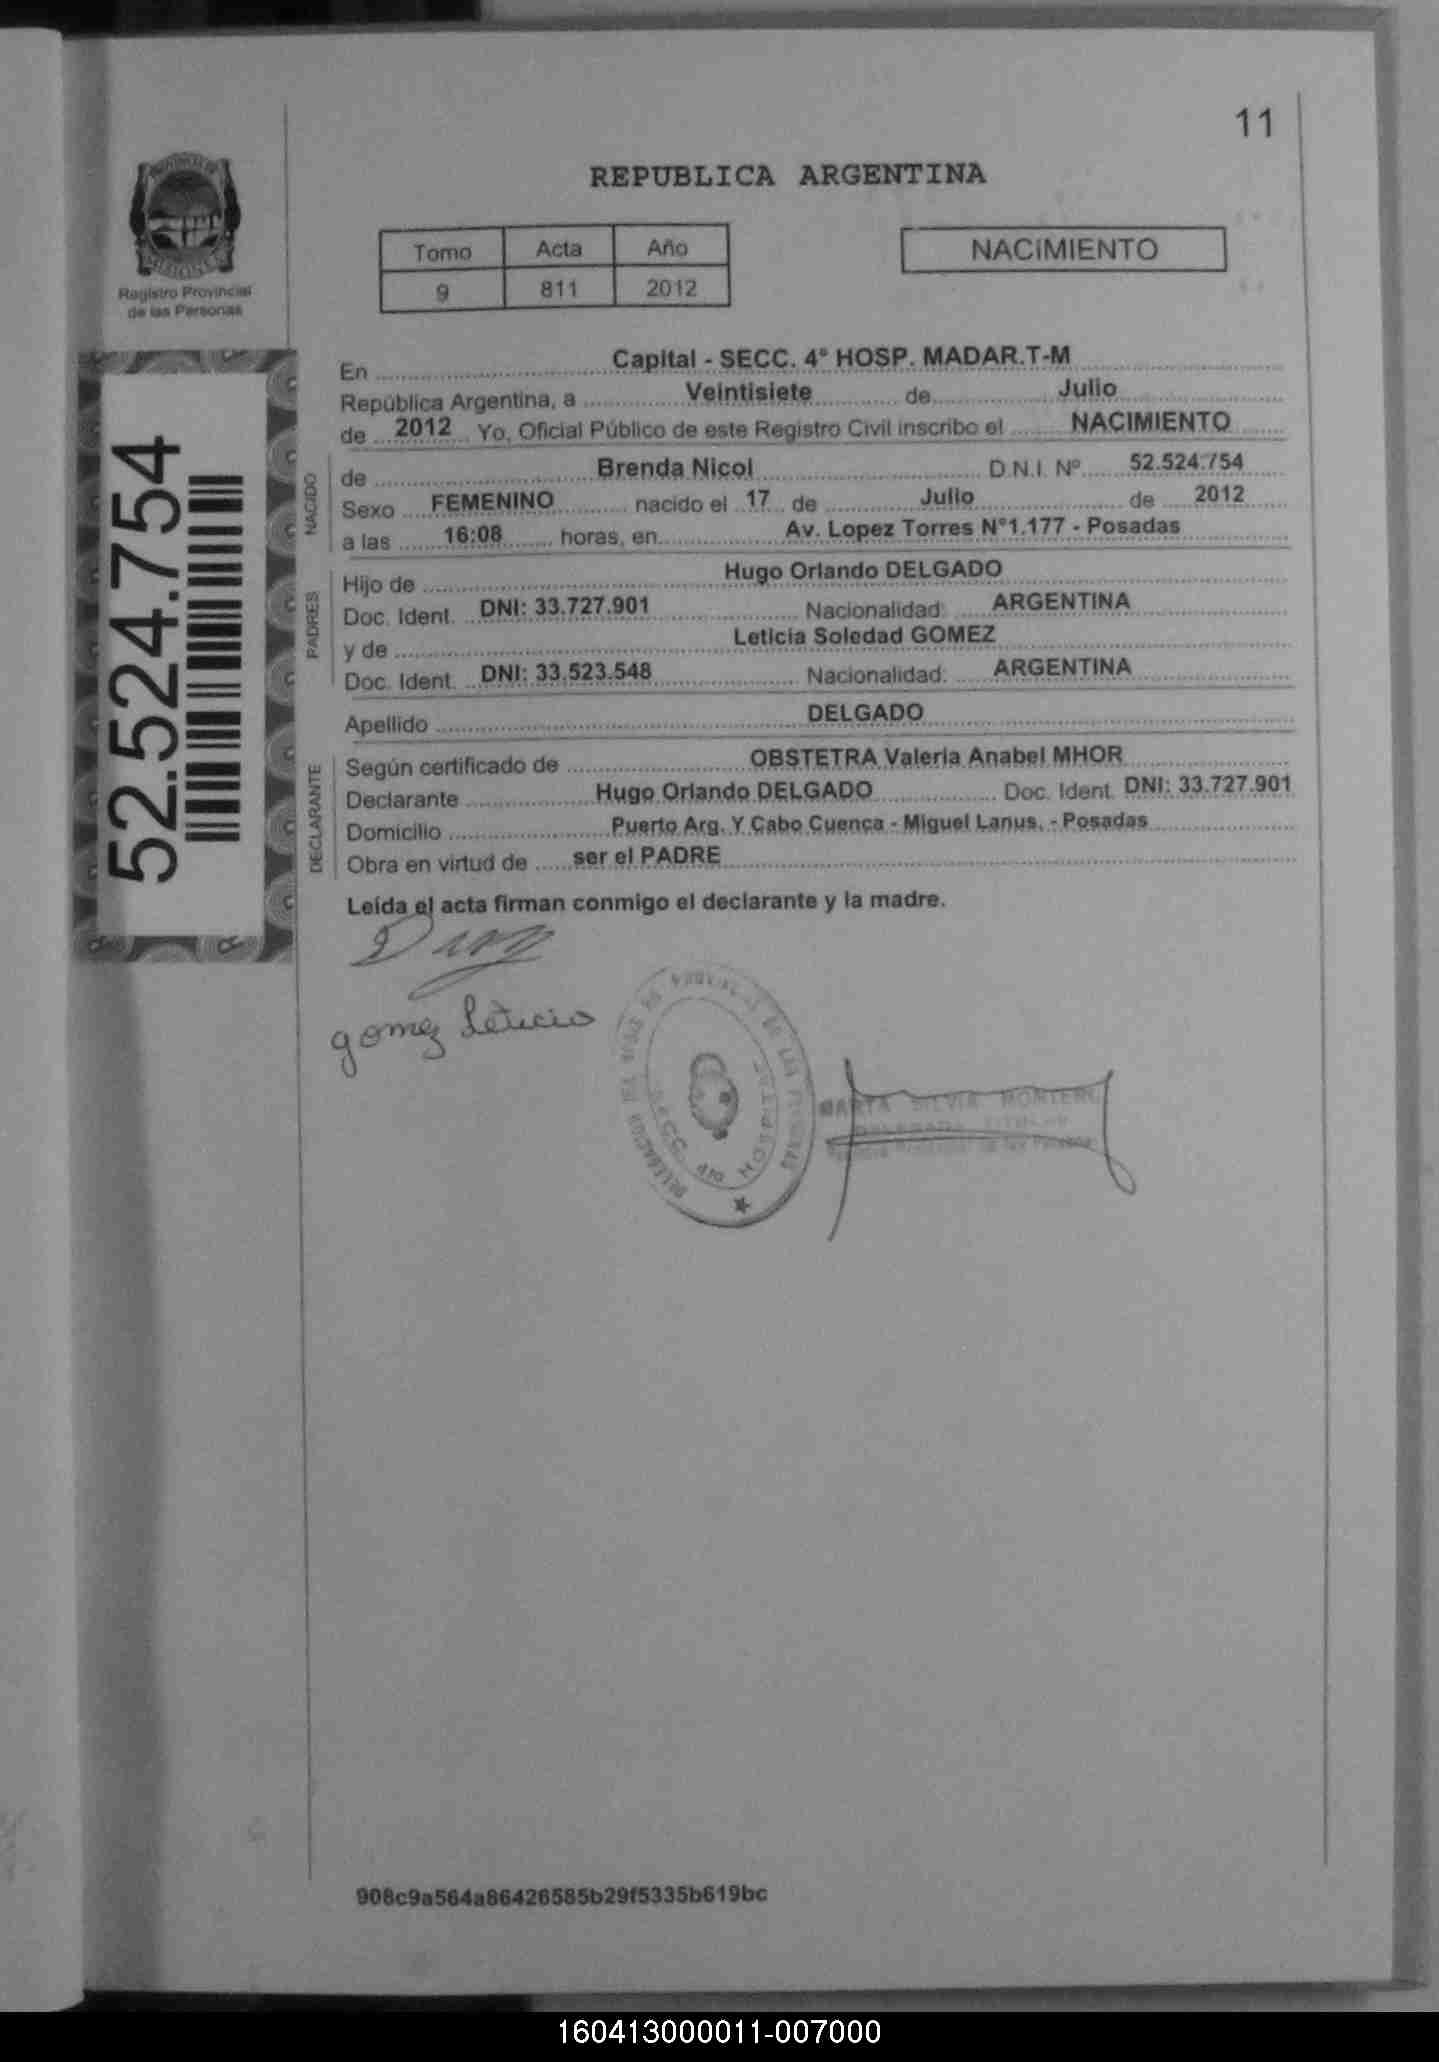 11
PROVINCIA DE
MISIONES
Registro Provincial
de las Personas
REPUBLICA ARGENTINA
Tomo Acta Año
9 811 2012
NACIMIENTO
52.524.754
En Capital - SECC. 4° HOSP. MADAR.T-M
República Argentina, a Veintisiete de Julio
de 2012 Yo, Oficial Público de este Registro Civil inscribo el NACIMIENTO
NACIDO
de Brenda Nicol D.N.I. Nº 52.524.754
Sexo FEMENINO nacido el 17 de Julio de 2012
a las 16:08 horas, en Av. Lopez Torres N°1.177 - Posadas
PADRES
Hijo de Hugo Orlando DELGADO
Doc. Ident. DNI: 33.727.901 Nacionalidad: ARGENTINA
y de Leticia Soledad GOMEZ
Doc. Ident. DNI: 33.523.548 Nacionalidad: ARGENTINA
Apellido DELGADO
DECLARANTE
Según certificado de OBSTETRA Valeria Anabel MHOR
Declarante Hugo Orlando DELGADO Doc. Ident. DNI: 33.727.901
Domicilio Puerto Arg. Y Cabo Cuenca - Miguel Lanus. - Posadas
Obra en virtud de ser el PADRE
Leída el acta firman conmigo el declarante y la madre.
gomez Leticia
DE LAS PERSONAS
HOSPITAL
MARTA SILVIA MONTERO
908c9a564a86426585b29f5335b619bc
160413000011-007000